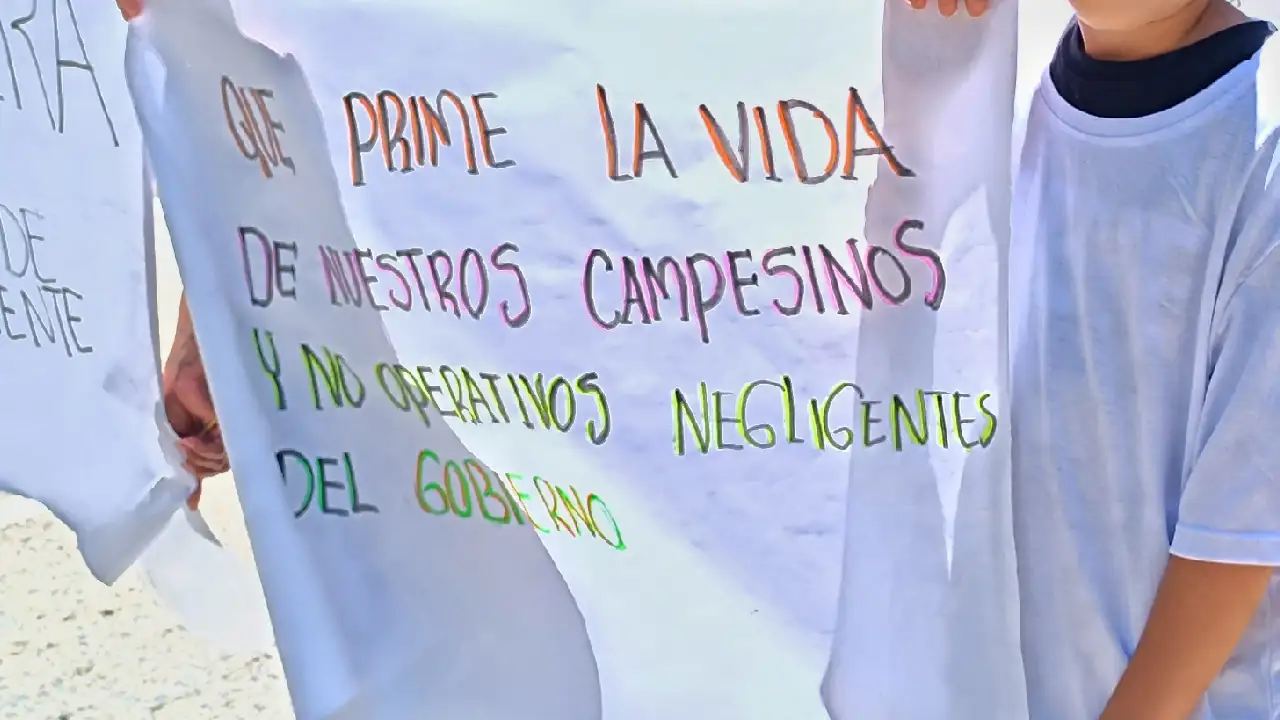 QUE PRIME LA VIDA
DE NUESTROS CAMPESINOS
Y NO OPERATIVOS NEGLIGENTES
DEL GOBIERNO
RA
DE
ENTE